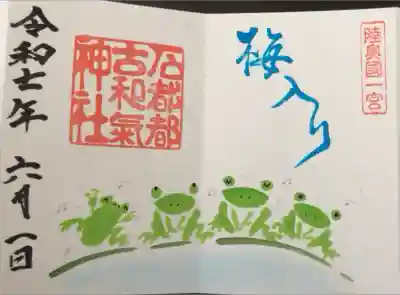 陸奥國一宮
梅入り
石都都
古和氣
神社
令和七年 六月一日